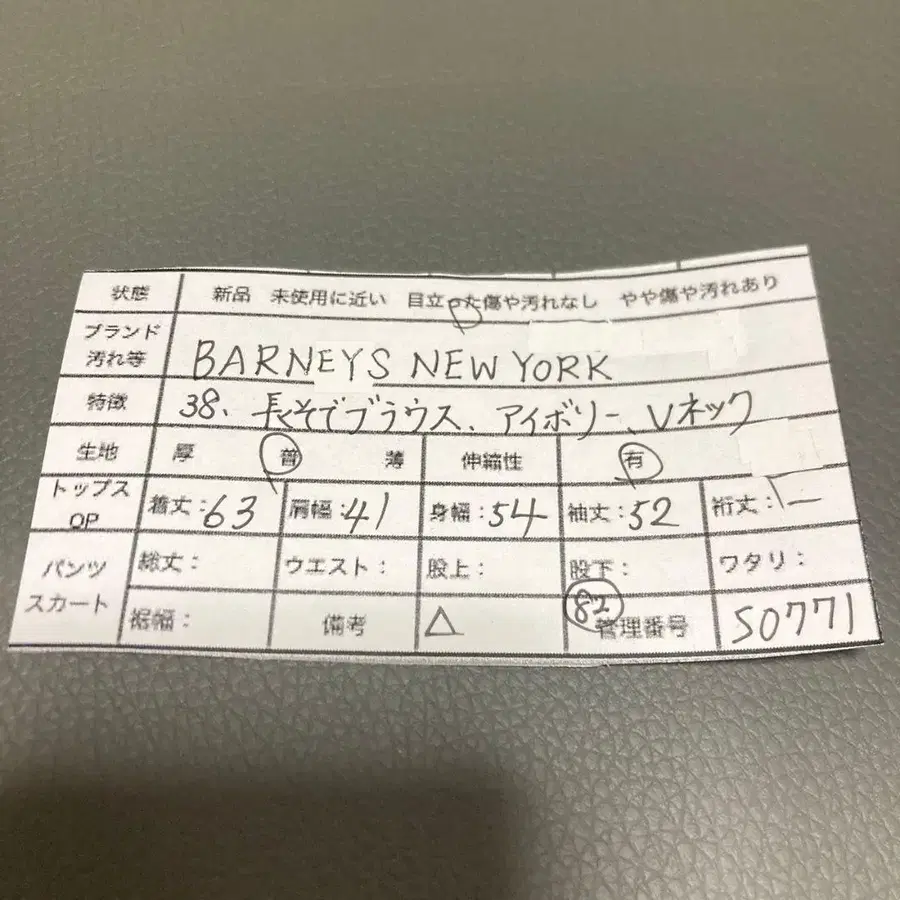 状態 新品 未使用に近い 目立った傷や汚れなし やや傷や汚れあり
ブランド
汚れ等 BARNEYS NEW YORK
特徴 38、長そでブラウス、アイボリー、Vネック
生地 厚 普 薄 伸縮性 有
トップス
OP 着丈：63 肩幅：41 身幅：54 袖丈：52 裄丈：
パンツ
スカート 総丈： ウエスト： 股上： 股下： ワタリ：
裾幅： 備考 △ 82 管理番号 S0771